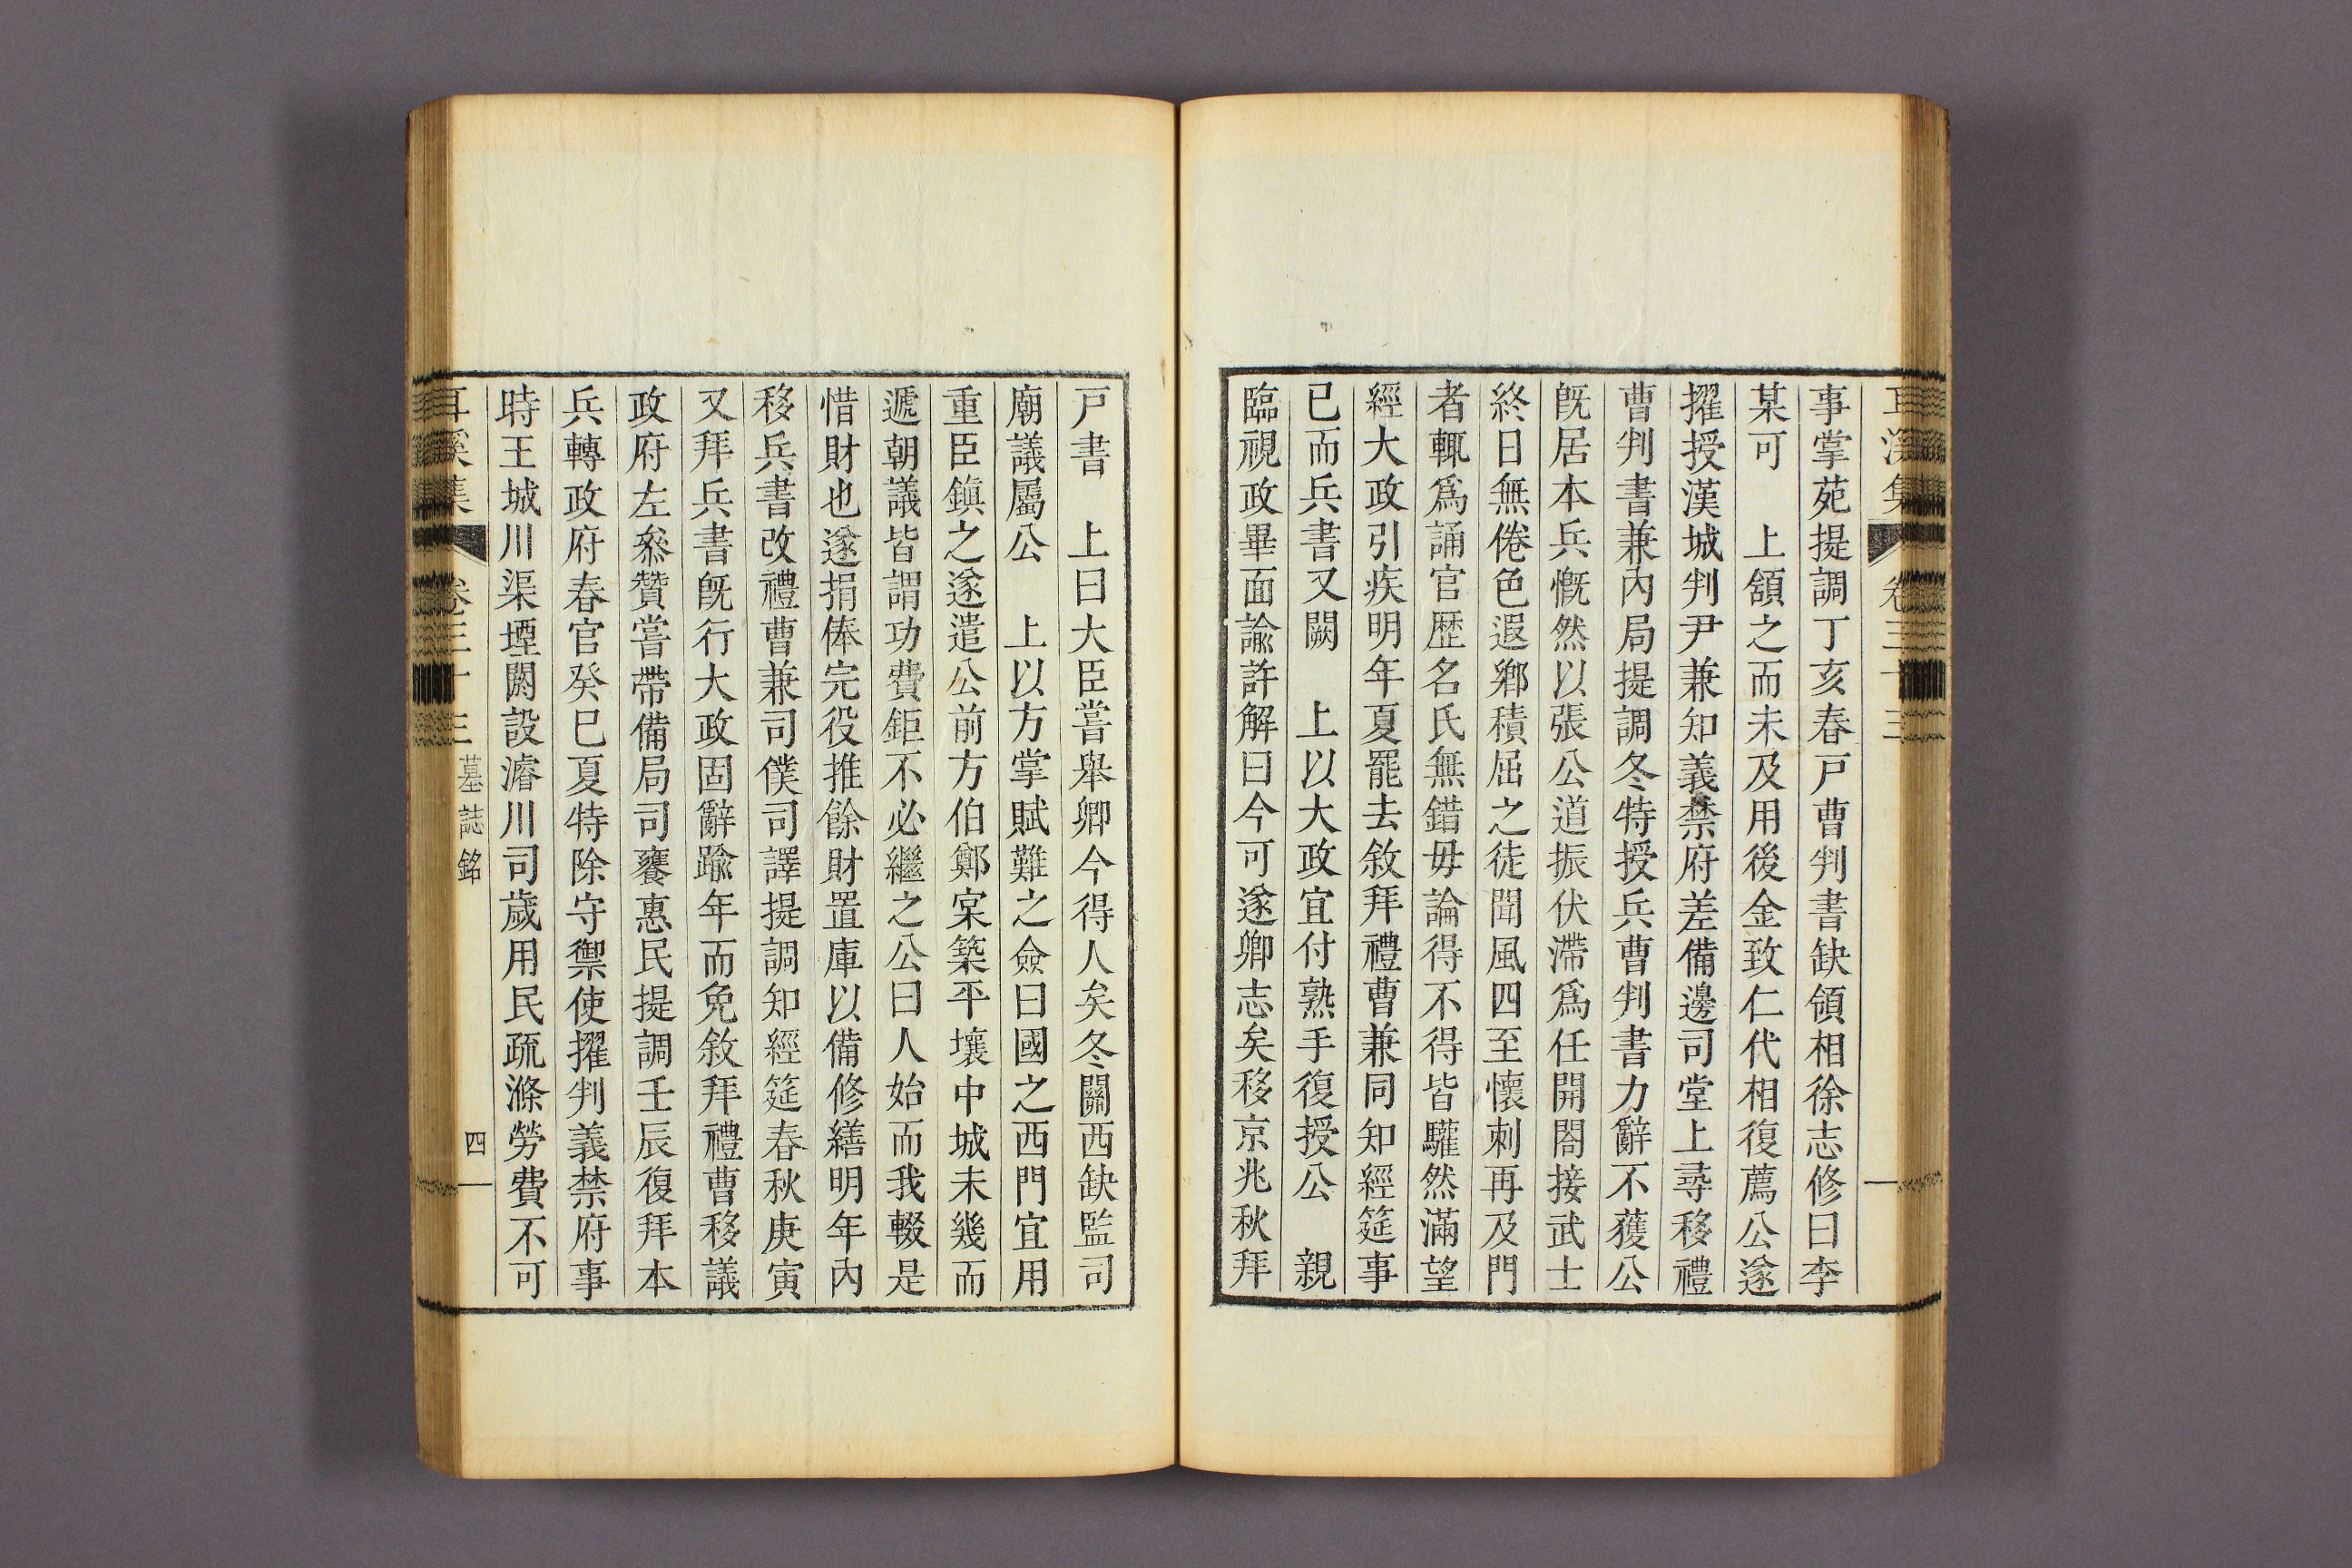 耳溪集 卷三十三
事掌苑提調丁亥春戸曹判書缺領相徐志修曰李
某可 上頷之而未及用後金致仁代相復薦公遂
擢授漢城判尹兼知義禁府差備邊司堂上尋移禮
曹判書兼內局提調冬特授兵曹判書力辭不獲公
旣居本兵慨然以張公道振伏滯爲任開閤接武士
終日無倦色遐鄕積屈之徒聞風四至懷刺再及門
者輒爲誦官歷名氏無錯毋論得不得皆驩然滿望
經大政引疾明年夏罷去敘拜禮曹兼同知經筵事
已而兵書又闕 上以大政宜付熟手復授公 親
臨視政畢面諭許解曰今可遂卿志矣移京兆秋拜
戸書 上曰大臣嘗舉卿今得人矣冬關西缺監司
廟議屬公 上以方掌賦難之僉曰國之西門宜用
重臣鎭之遂遣公前方伯鄭宲築平壤中城未幾而
遞朝議皆謂功費鉅不必繼之公曰人始而我輟是
惜財也遂捐俸完役推餘財置庫以備修繕明年內
移兵書改禮曹兼司僕司譯提調知經筵春秋庚寅
又拜兵書旣行大政固辭踰年而免敘拜禮曹移議
政府左叅贊嘗帶備局司饔惠民提調壬辰復拜本
兵轉政府春官癸巳夏特除守禦使擢判義禁府事
時王城川渠堙閼設濬川司歲用民疏滌勞費不可
耳溪集 卷三十三 墓誌銘 四